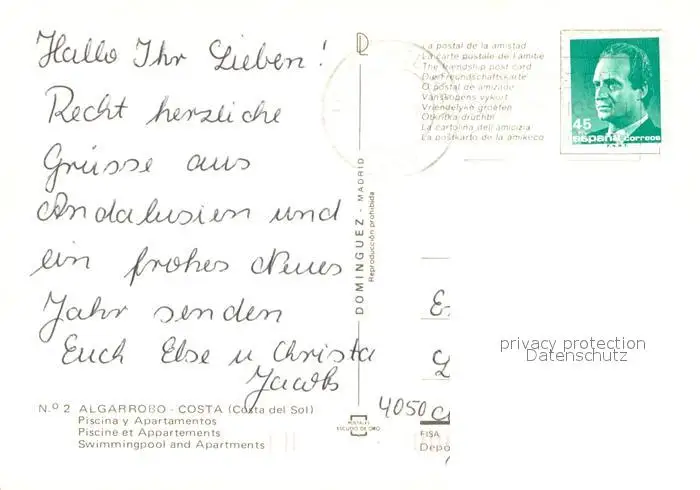 Hallo Ihr Lieben!
Recht herzliche
Grüsse aus
Andalusien und
ein frohes Neues
Jahr senden
Euch Else u Christa
Jacobs
Nº 2 ALGARROBO - COSTA (Costa del Sol)
Piscina y Apartamentos
Piscine et Appartements
Swimmingpool and Apartments
DOMINGUEZ - MADRID
Reproducción prohibida
POSTALES
ESCUDO DE ORO
La postal de la amistad
La carte postale de l'amitié
The friendship post card
Die Freundschaftskarte
O postal de amizade
Vänskapens vykort
Vriendelyke groeten
Otkritka druchbi
La cartolina dell'amicizia
La postkarto de la amikeco
45
España correos
4050
FISA
privacy protection
Datenschutz